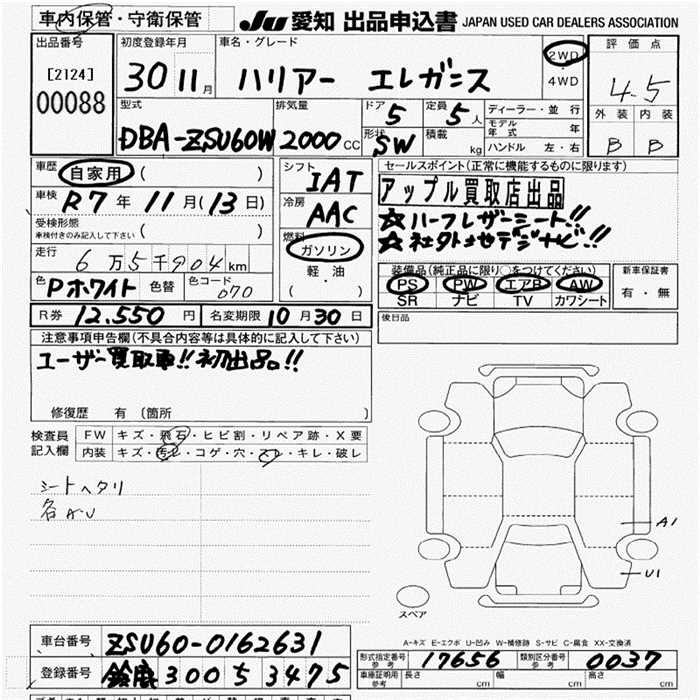 車内保管・守衛保管
JU 愛知 出品申込書 JAPAN USED CAR DEALERS ASSOCIATION
出品番号
[2124]
00088
初度登録年月
30 11月
車名・グレード
ハリアー エレガンス
2WD
・
4WD
評価点
4.5
外装 内装
B B
型式
DBA-ZSU60W
排気量
2000cc
ドア
5
形状
SW
定員
5人
積載
kg
ディーラー・並行
モデル年式 年
ハンドル 左・右
車歴 自家用 ( )
車検 R7年 11月(13日)
受検形態
車検付きのみ記入して下さい ( )
走行 6万5千904km
色 Pホワイト 色替 色コード 070
シフト
IAT
冷房
AAC
燃料
ガソリン
軽油
( ・ )
セールスポイント(正常に機能するものに限ります)
アップル買取店出品
☆ハーフレザーシート!!
☆社外地デジナビ!!
装備品(純正品に限り○をつけてください)
PS PW エアB AW
SR ナビ TV カワシート
新車保証書
有・無
R券 12.550円 名変期限 10月30日
後日品
注意事項申告欄(不具合内容等は具体的に記入して下さい)
ユーザー買取車!!初出品!!
修復歴 有 〔箇所 〕
検査員記入欄
FW キズ・飛石・ヒビ割・リペア跡・X要
内装 キズ・汚レ・コゲ・穴・スレ・キレ・破レ
シートヘタリ
各A・U
A1
U1
スペア
A-キズ E-エクボ U-凹み W-補修跡 S-サビ C-腐食 XX-交換済
車台番号 ZSU60-0162631
登録番号 鈴鹿 300 ち 3475
形式指定番号 参考 17656 類別区分番号 参考 0037
車庫証明用 参考 長さ cm 幅 cm 高さ cm